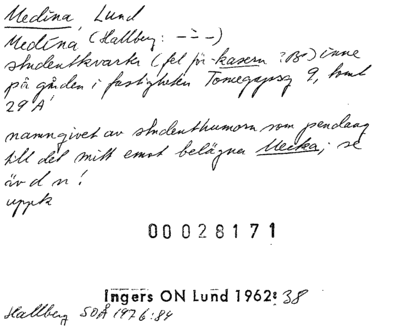 Medina, Lund
Medina (Hallberg: -"-)
studentkvarter (fel för kasern? Bo) inne
på gården i fastigheten Tomegapsg 9, tomt
29 A,
namngivet av studenthumorn som pendang
till det mitt emot belägna Mecka; se
äv d n!
uppk
00028171
Ingers ON Lund 1962: 38
Hallberg SOÅ 1976:84